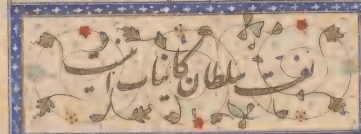 نعت سلطان کاینات